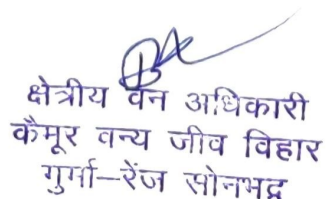 क्षेत्रीय वन अधिकारी
कैमूर वन्य जीव विहार
गुर्मा–रेंज सोनभद्र